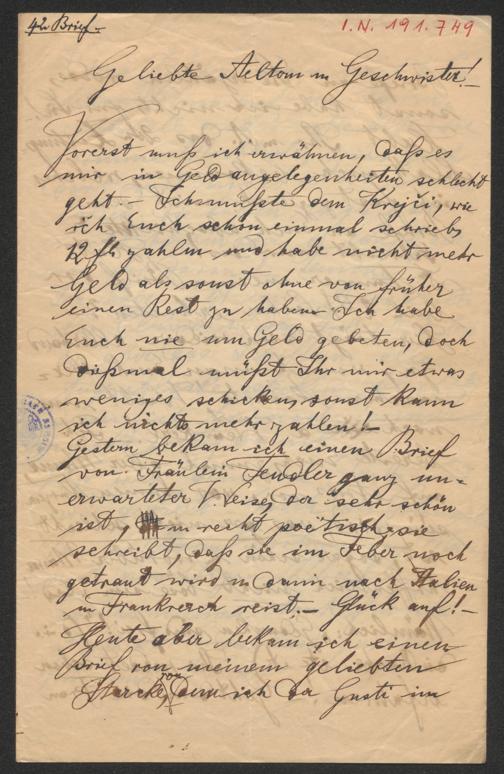 42 Brief.-
I. N. 191.749
Geliebte Aeltern u Geschwister!-
Vorerst muß ich erwähnen, daß es
mir in Geldangelegenheiten schlecht
geht.- Ich mußte dem Krejči, wie
ich Euch schon einmal schrieb,
12 fl zahlen und habe nicht mehr
Geld als sonst ohne von früher
einen Rest zu haben. Ich habe
Euch nie um Geld gebeten, doch
dießmal müßt Ihr mir etwas
weniges schicken, sonst kann
ich nichts mehr zahlen!-
Gestern bekam ich einen Brief
von Fräulein Fendler ganz un=
erwarteter Weise, der sehr schön
ist, u recht poetisch, sie
schreibt, daß sie im Feber noch
getraut wird u dann nach Italien
u Frankreich reist.- Glück auf!-
Heute aber bekam ich einen
Brief von meinem geliebten
Starcke, von dem ich der Gusti im